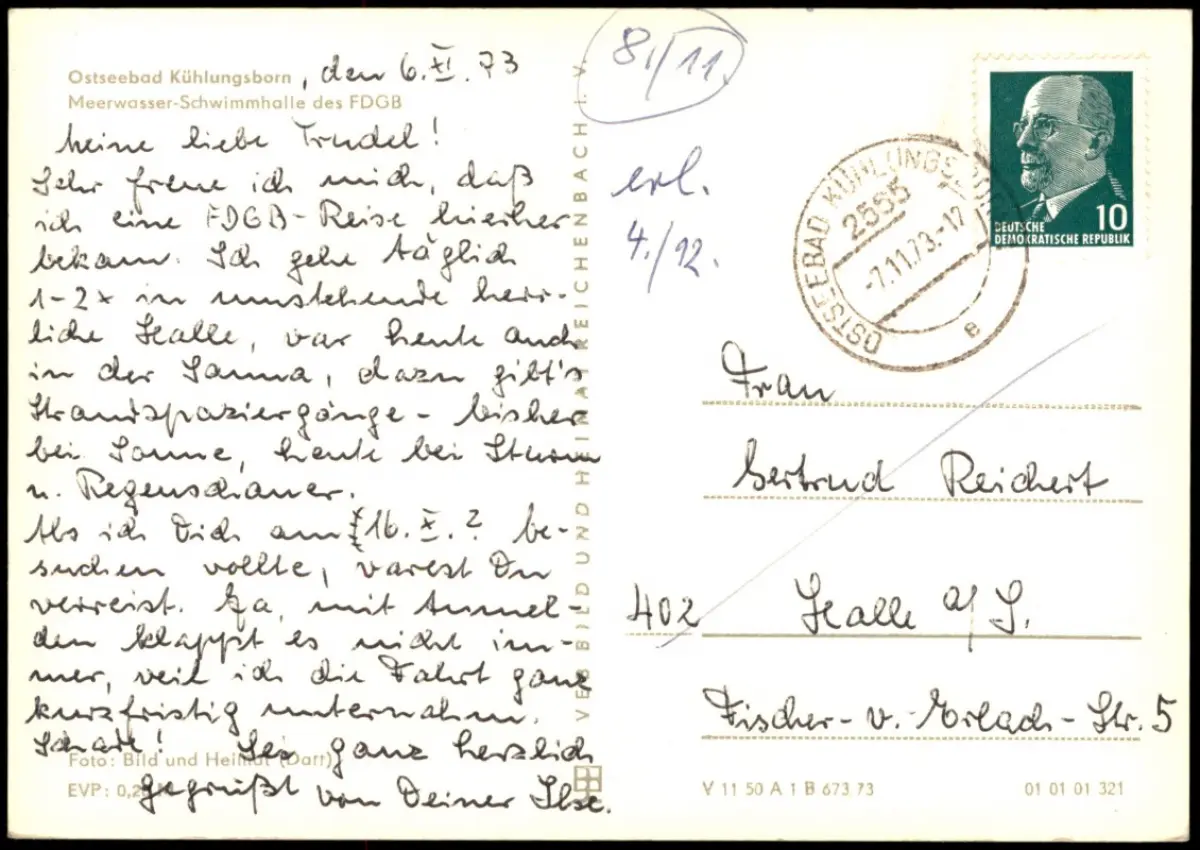 Ostseebad Kühlungsborn, den 6. XI. 73
Meerwasser-Schwimmhalle des FDGB
Meine liebe Trudel!
Sehr freue ich mich, daß
ich eine FDGB-Reise hierher
bekam. Ich gehe täglich
1-2x in umstehende herr-
liche Halle, war heute auch
in der Sauna, dazu gibt's
Strandspaziergänge - bisher
bei Sonne, heute bei Sturm
u. Regenschauer.
Als ich Dich am 16. X.? be-
suchen wollte, warest Du
verreist. Ja, mit Anmel-
den klappt es nicht im-
mer, weil ich die Fahrt ganz
kurzfristig unternahm.
Schade! Sei ganz herzlich
gegrüßt von Deiner Ilse.
Foto: Bild und Heimat (Darr)
EVP: 0,20
VEB BILD UND HEIMAT REICHENBACH I. V.
81/11.
erl.
4./12.
OSTSEEBAD KÜHLUNGSBORN
2565
-7.11.73.-17
e
10
DEUTSCHE
DEMOKRATISCHE REPUBLIK
Frau
Gertrud Reichert
402 Halle a/S.
Fischer-v.-Erlach-Str. 5
V 11 50 A 1 B 673 73
01 01 01 321